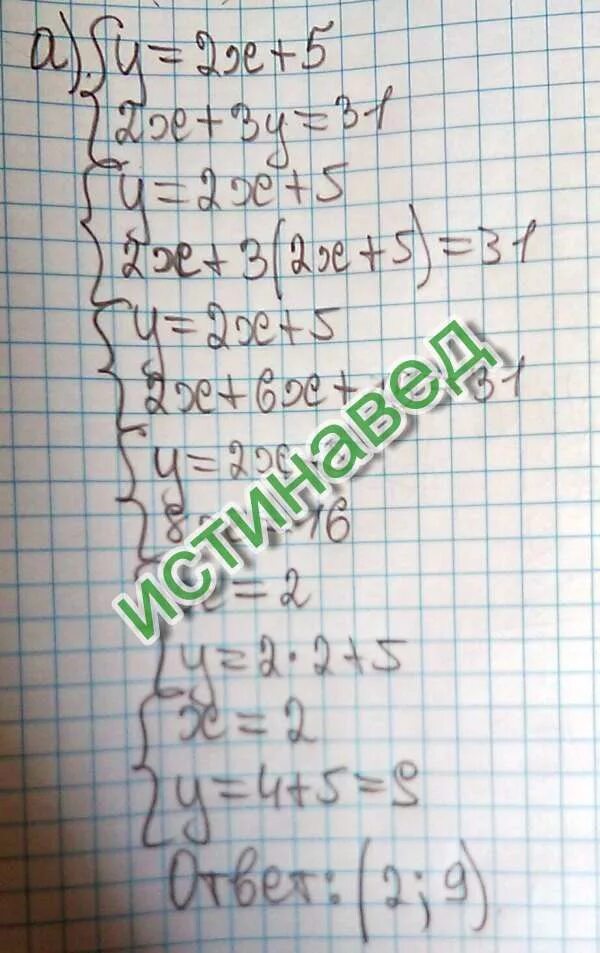 а) { y = 2x + 5
2x + 3y = 31
{ y = 2x + 5
2x + 3(2x + 5) = 31
{ y = 2x + 5
2x + 6x + 31
{ y = 2x
8 16
= 2
{ y = 2 · 2 + 5
{ x = 2
y = 4 + 5 = 9
Ответ: (2; 9)
ИСТИНАВЕД